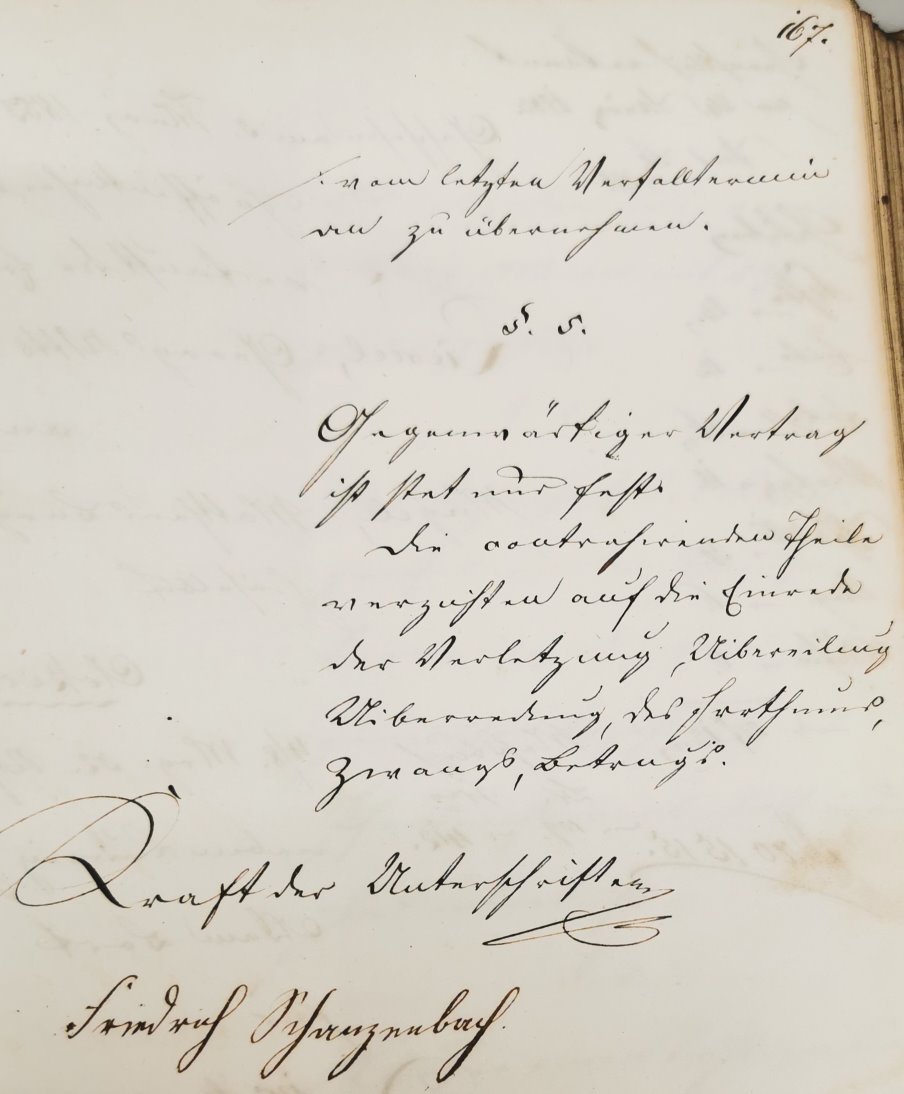 167.
/. vom letzten Verfalltermin
an zu übernehmen.
§. 5.
Gegenwärtiger Vertrag
ist stet und fest.
Die contrahirenden Theile
verzichten auf die Einrede
der Verletzung, Uibereilung
Uiberredung, des Irrthums,
Zwangs, Betrugs.
Kraft der Unterschriften
Friedrich Schanzenbach.